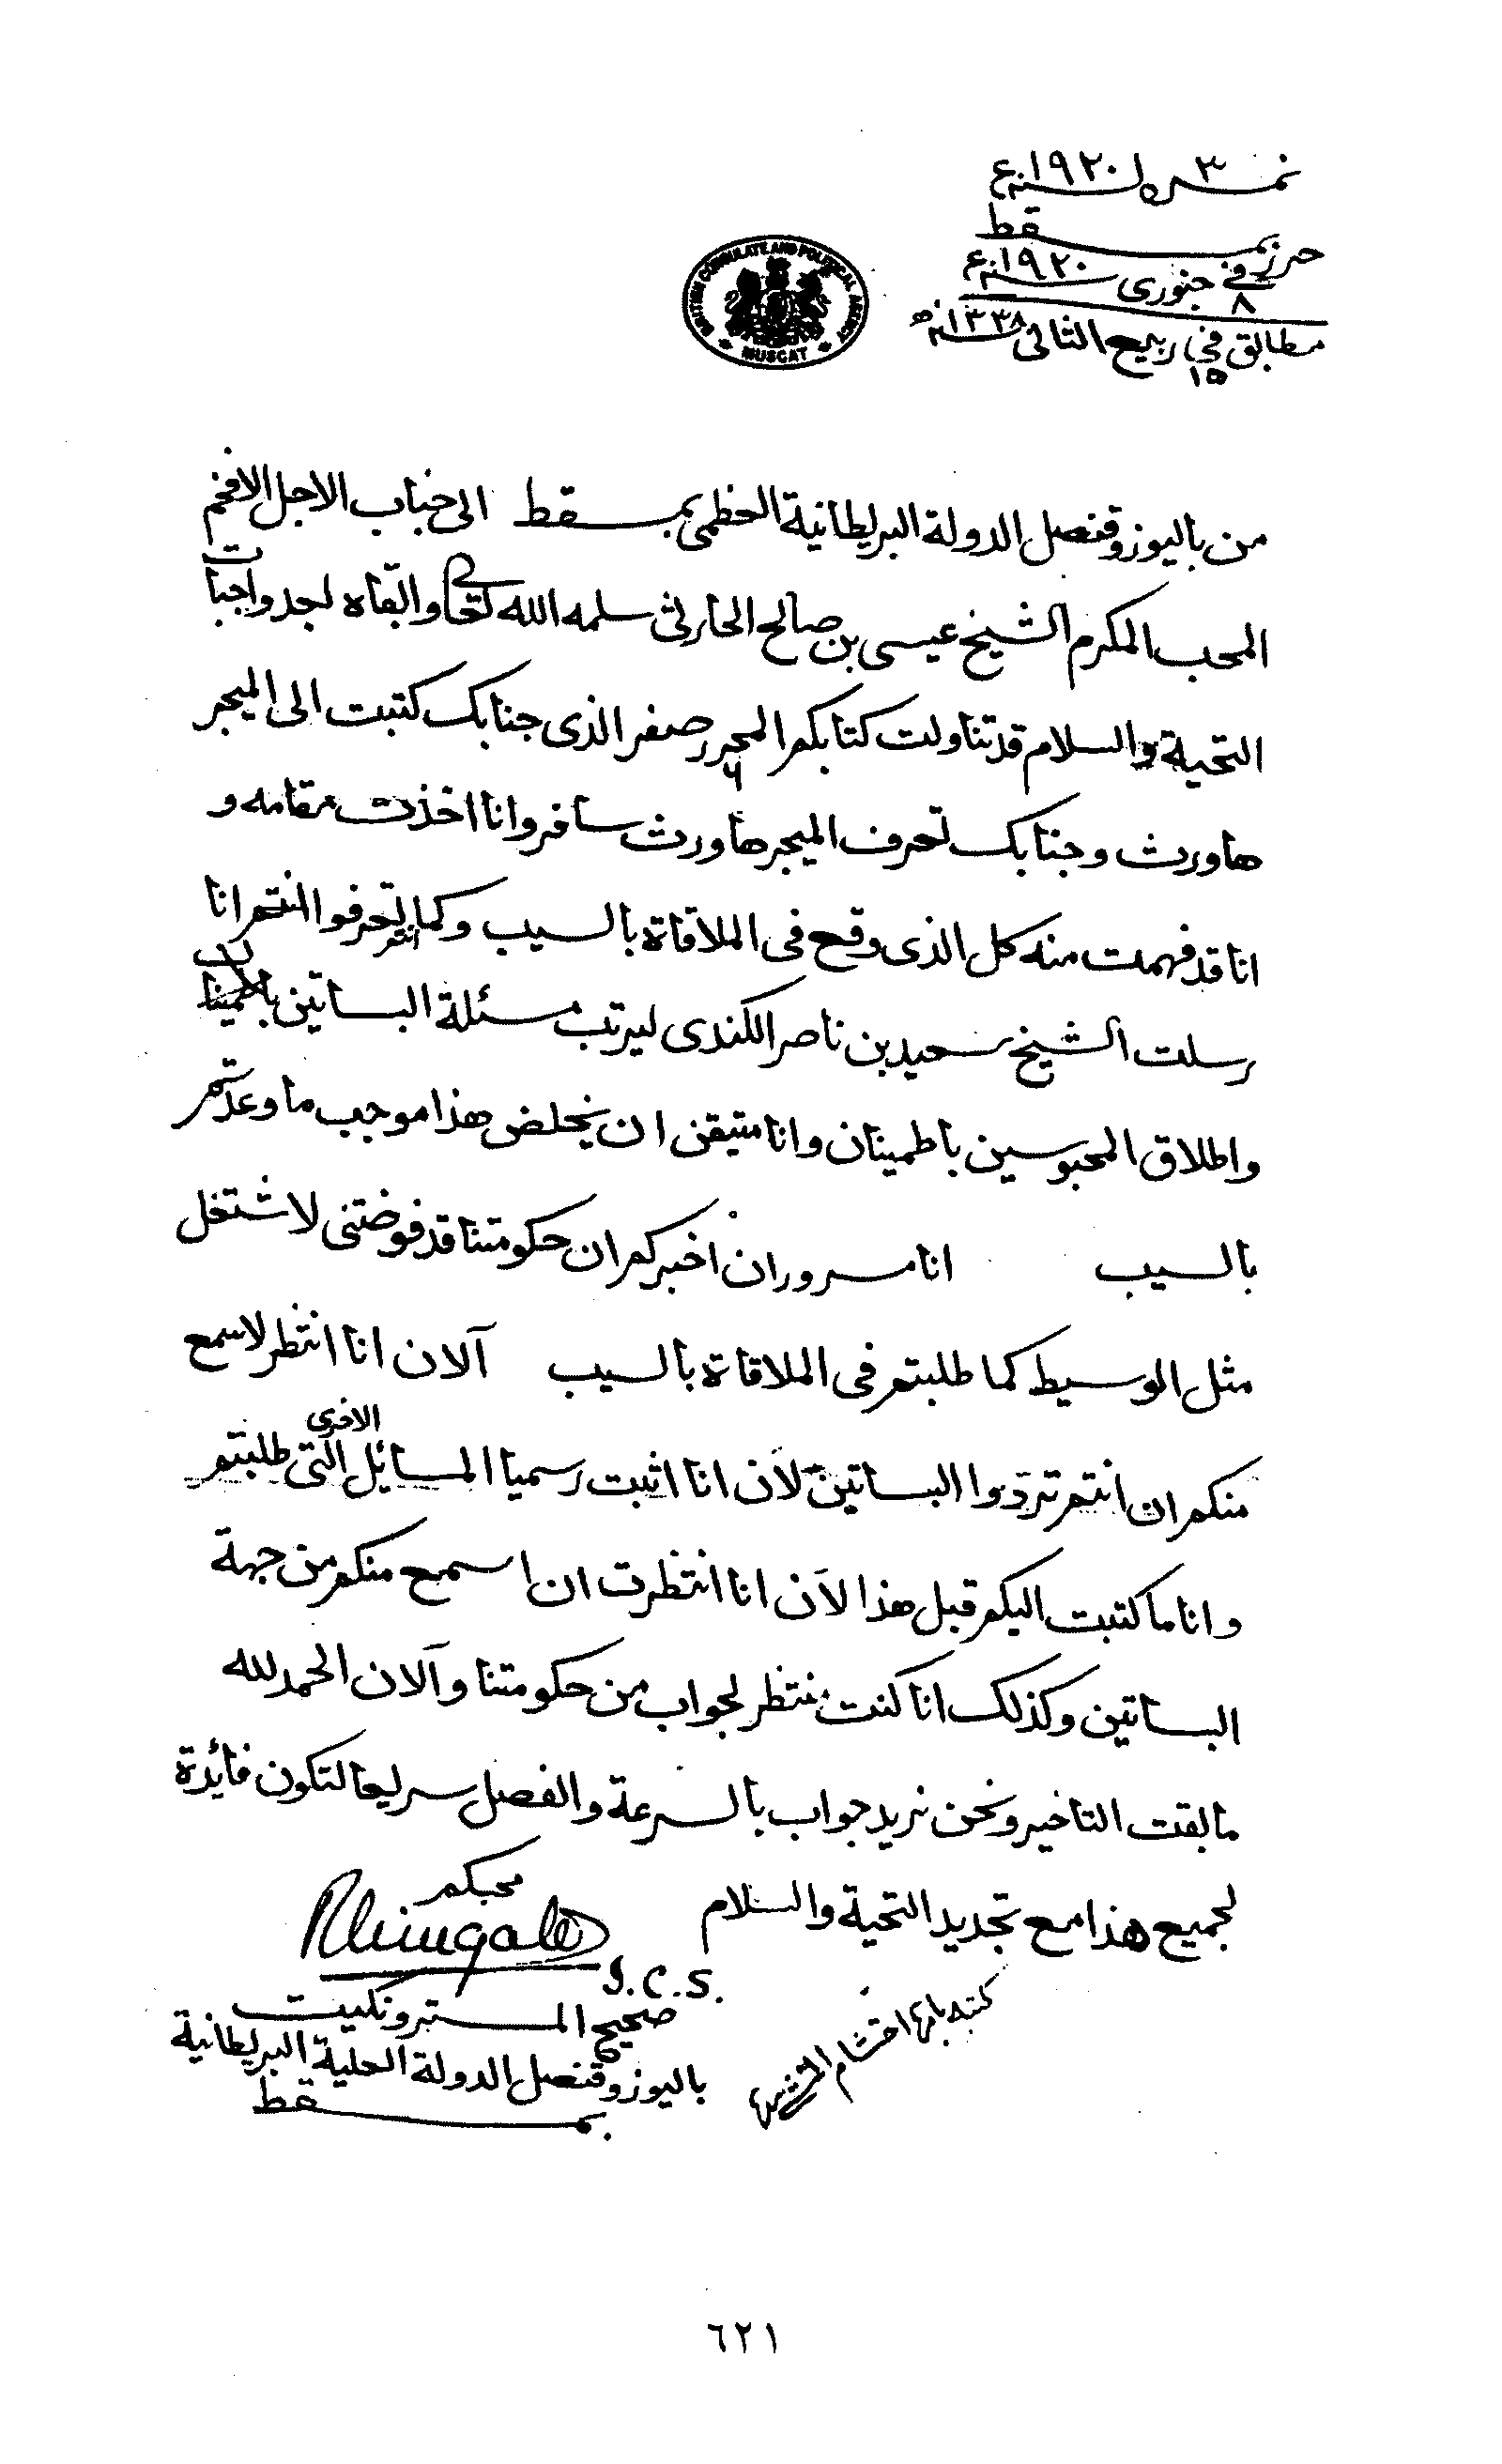 نمره ٣ لسنه ١٩٢٠ع
حرر بمسقط
في ٨ جنوري سنه ١٩٢٠ع
مطابق في ١٥ ربيع الثاني سنه ١٣٣٨ه
BRITISH CONSULATE AND POLITICAL AGENCY
MUSCAT
من باليوز وقنصل الدولة البريطانية العظمى بمسقط الى جناب الاجل الافخم
المحب المكرم الشيخ عيسى بن صالح الحارثي سلمه الله تعالى وابقاه لجد واجبات
التحية والسلام قد تناولت كتابكم المحرر ٦ صفر الذى جنابك كتبت الى الميجر
هاورث وجنابك تعرف الميجر هاورث سافر وانا اخذت مقامه و
انا قد فهمت منه كل الذى وقع في الملاقاة بالسيب وكما تعرفوا انتم انا
رسلت الشيخ سعيد بن ناصر الكندى ليرتب مسئلة البساتين باطمينان
واطلاق المحبوسين باطمينان وانا متيقن ان يخلض هذا موجب ما وعدتم
بالسيب انا مسرور ان اخبركم ان حكومتنا قد فوضتنى لاشتغل
مثل الوسيط كما طلبتم في الملاقاة بالسيب آلان انا انتظر لاسمع
منكم ان انتم تردوا البساتين لآن انا اثبت رسميا المسايل الاخرى التى طلبتم
وانا ما كتبت اليكم قبل هذا لآن انا انتظرت ان اسمع منكم من جهة
البساتين وكذلك انا كنت منتظر لجواب من حكومتنا وآلان الحمد لله
ما بقت التاخير ونحن نريد جواب بالسرعة والفصل سريعا لتكون فائدة
لجميع هذا مع تجديد التحية والسلام
محبكم
Rhingale
I.C.S.
صحيح المستر ونكيت
باليوز وقنصل الدولة العلية البريطانية
بمسقط
كتبه بامره احتشام
٦٢١